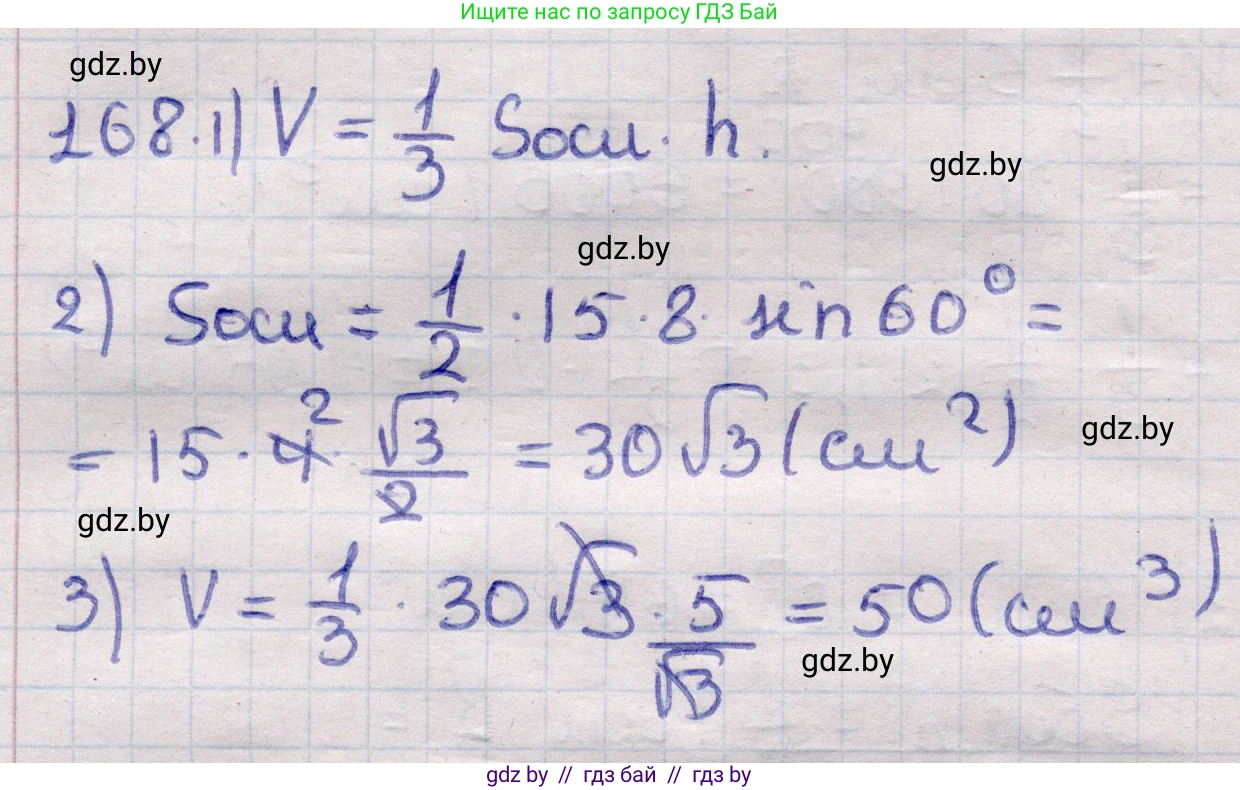 Ищите нас по запросу ГДЗ Бай
gdz.by
168. 1) V = 1/3 Sосн · h.
gdz.by
gdz.by
2) Sосн = 1/2 · 15 · 8 · sin 60° =
= 15 · 4 2 · √3/2 = 30√3 (см²)
gdz.by
gdz.by
3) V = 1/3 · 30√3 · 5/√3 = 50 (см³)
gdz.by
gdz by // гдз бай // гдз by